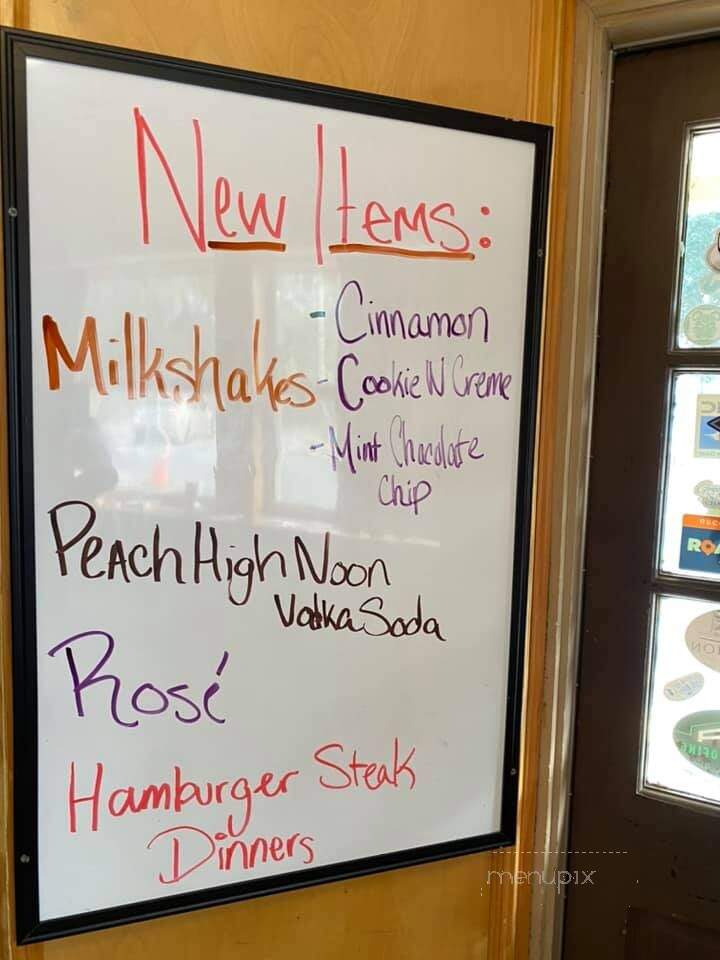 New Items:
Milkshakes - Cinnamon
- Cookie N Creme
- Mint Chocolate
Chip
Peach High Noon
Vodka Soda
Rosé
Hamburger Steak
Dinners
menupix